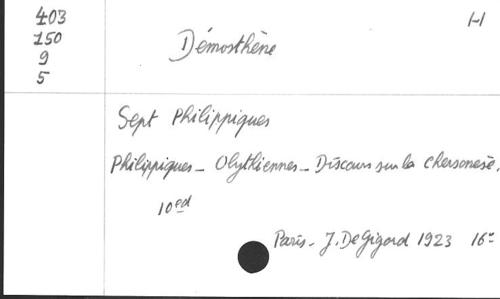 403
H
150
Démosthène
9
5
Sept Philippiques
Philippiques - Olythiennes - Discours sur la Chersonèse.
10ed
Paris - J. De Gigord 1923 16°